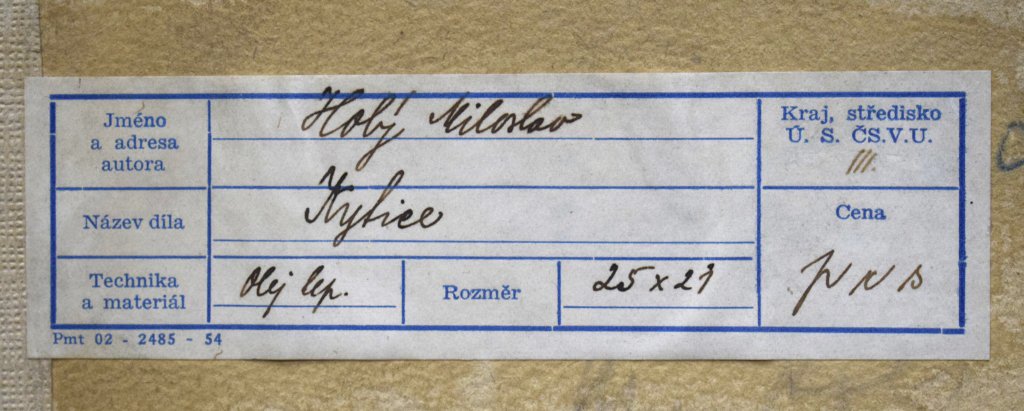 Jméno
a adresa
autora
Holý Miloslav
Kraj, středisko
Ú. S. ČS.V.U.
III.
Název díla
Kytice
Cena
Technika
a materiál
Olej lep.
Rozměr
Pmt 02 - 2485 - 54